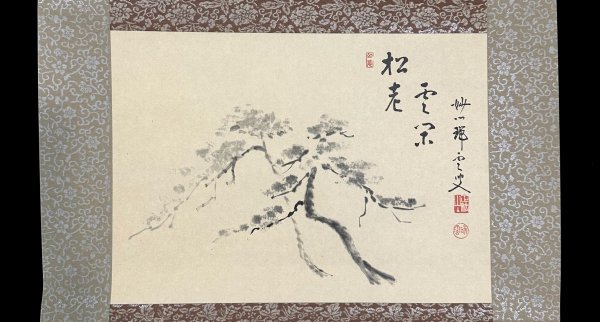 松老
雲閑
妙心瑞雲叟